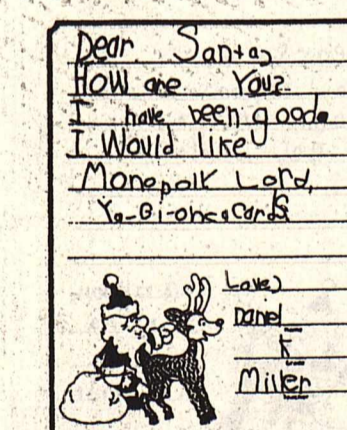 Dear Santa,
How are You?
I have been good.
I Would like
Monopolk Lord,
Ya-Gi-oh cards
Love,
Daniel
K
Miller